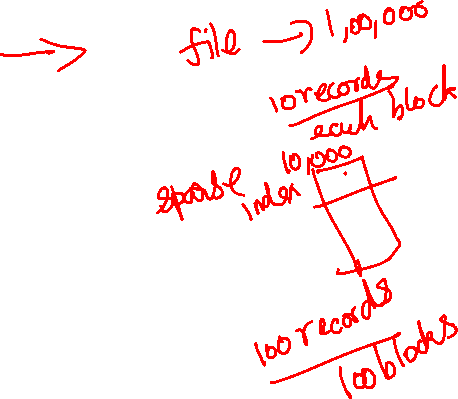 file → 1,00,000
10 records
each block
10,000
sparse
index
100 records
100 blocks